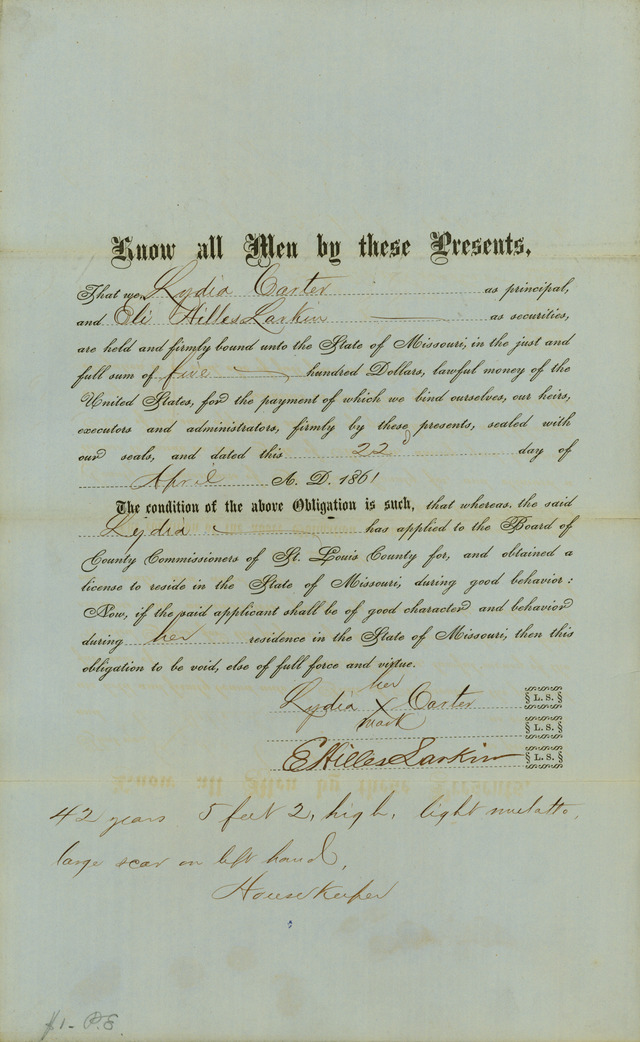 Know all Men by these Presents,
That we Lydia Carter as principal,
and Eli Hilles Larkin as securities,
are held and firmly bound unto the State of Missouri, in the just and
full sum of five hundred Dollars, lawful money of the
United States, for the payment of which we bind ourselves, our heirs,
executors and administrators, firmly by these presents, sealed with
our seals, and dated this 22 day of
April A. D. 1861
The condition of the above Obligation is such, that whereas, the said
Lydia has applied to the Board of
County Commissioners of St. Louis County for, and obtained a
license to reside in the State of Missouri, during good behavior:
Now, if the said applicant shall be of good character and behavior
during her residence in the State of Missouri, then this
obligation to be void, else of full force and virtue.
her
Lydia X Carter L. S.
mark L. S.
E Hilles Larkin L. S.
42 years 5 feet 2, high, light mulatto,
large scar on left hand,
House Keeper